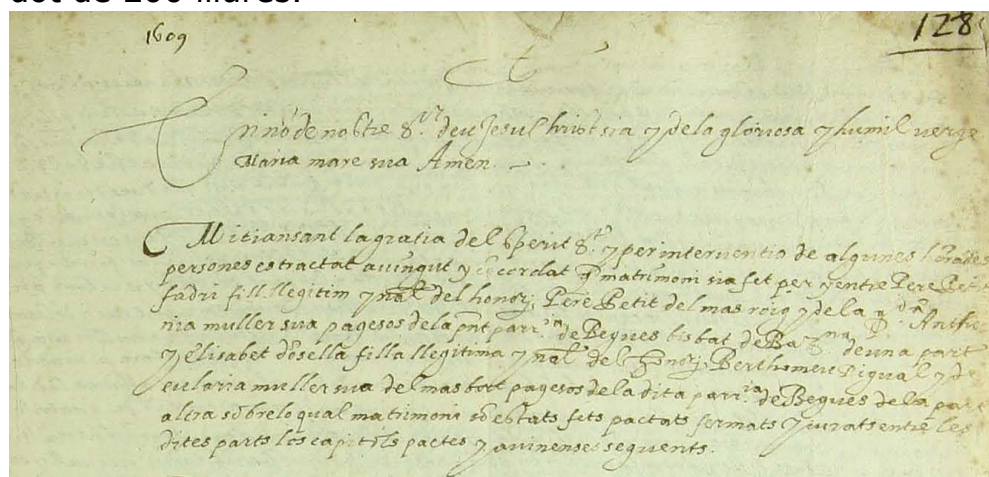 dot de 200 lliures.
1609
128
En nō de nostre Sr. deu Jesu christ sia y de la gloriosa y humil verge
Maria mare sua Amen.
Mitiansant la gratia del sperit St. y per interventio de algunes honrades
persones es tractat avingut y concordat q matrimoni sia fet per y entre Pere Petit
fadri fill llegitim y nal. del honor. Pere Petit del mas roig y de la q Dna. Anthi
nia muller sua pagesos de la pnt parria. de Begues bisbat de Barna. de una part
y Elisabet dōsella filla llegitima y nal. de honor. Berthomeu Pigual y de
eularia muller sua del mas font pagesos de la dita parria. de Begues de la part
altra sobre lo qual matrimoni so estats fets pactats fermats y jurats entre les
dites parts los capitols pactes y avinenses seguents.